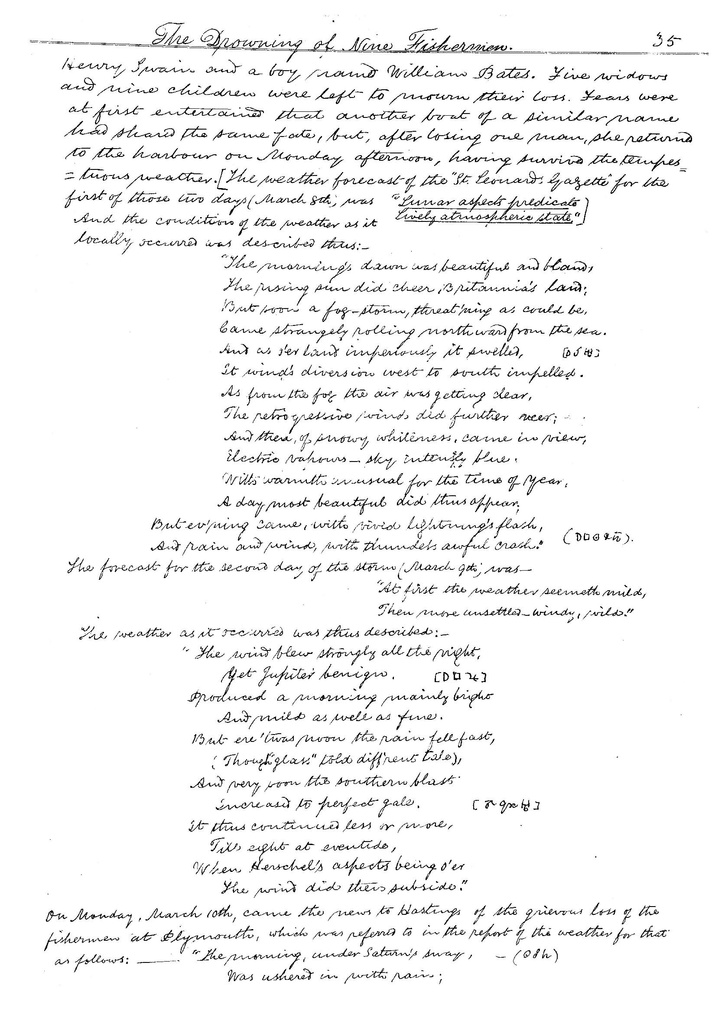 The Drowning of Nine Fishermen. 35
Henry Swain and a boy named William Bates. Five widows
and nine children were left to mourn their loss. Fears were
at first entertained that another boat of a similar name
had shared the same fate, but, after losing one man, she returned
to the harbour on Monday afternoon, having survived the tempes=
=tuous weather. [The weather forecast of the "St. Leonards Gazette" for the
first of those two days (March 8th) was "Lunar aspects predicate
Lively atmospheric state"]
And the condition of the weather as it
locally occurred was described thus:-
"The morning's dawn was beautiful and bland,
The rising sun did cheer, Britannia's land;
But soon a fog-storm, threat'ning as could be,
Came strangely rolling northward from the sea.
And as o'er land imperiously it swelled,
It wind's diversion west to south impelled.
As from the fog the air was getting clear,
The retrogressive winds did further veer;
And then, of snowy whiteness, came in view,
Electric vapours - sky intensly blue.
With warmth unusual for the time of Year,
A day most beautiful did thus appear,
But ev'ning came, with vivid lightning's flash,
And rain and wind, with thunder's awful crash."
The forecast for the second day of the storm (March 9th) was-
"At first the weather seemeth mild,
Then more unsettled - windy, wild."
The weather as it occurred was thus described:-
"The wind blew strongly all the night,
Yet Jupiter benign. [D□♃]
Produced a morning mainly bright
And mild as well as fine.
But ere 'twas noon the rain fell fast,
(Though "glass" told diff'rent tale),
And very soon the southern blast
Increased to perfect gale.
It thus continued less or more,
Till eight at eventide,
When Herschel's aspects being o'er
The wind did then subside."
On Monday, March 10th, came the news to Hastings of the grievous loss of the
fishermen at Plymouth, which was referred to in the report of the weather for that
as follows: —— "The morning, under Saturn's sway, -
Was ushered in with rain;